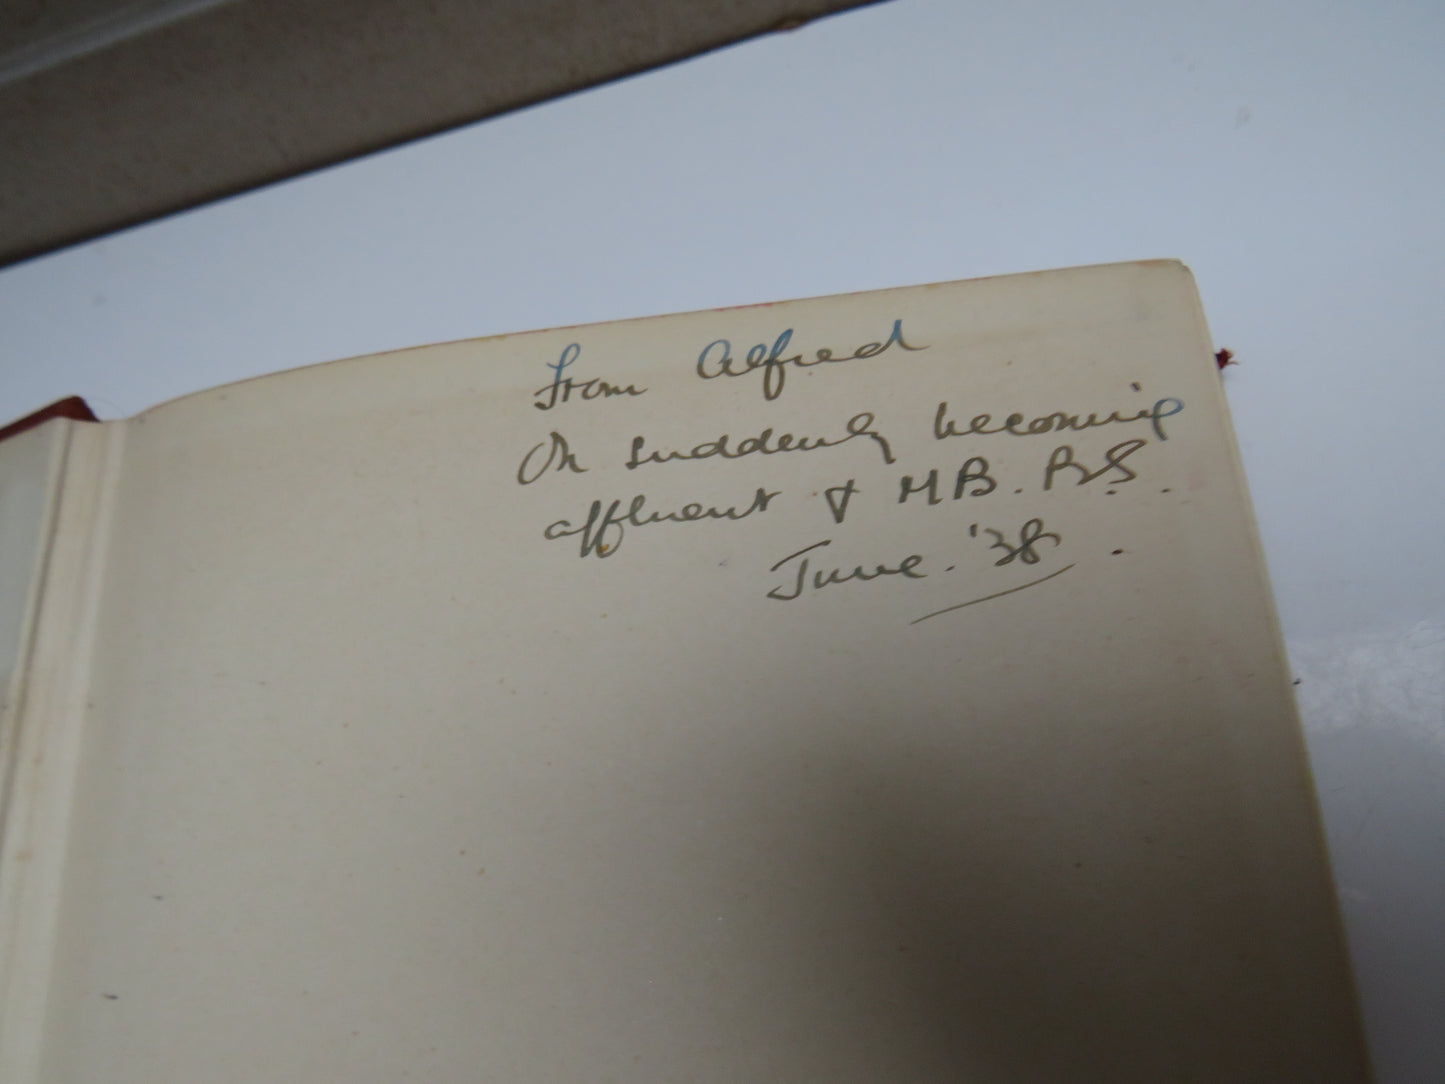 From Alfred
On suddenly becoming
affluent & M B. B S.
June. '38.